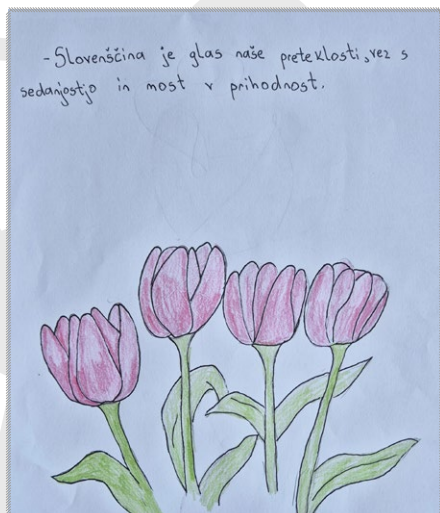 -Slovenščina je glas naše preteklosti, vez s
sedanjostjo in most v prihodnost.